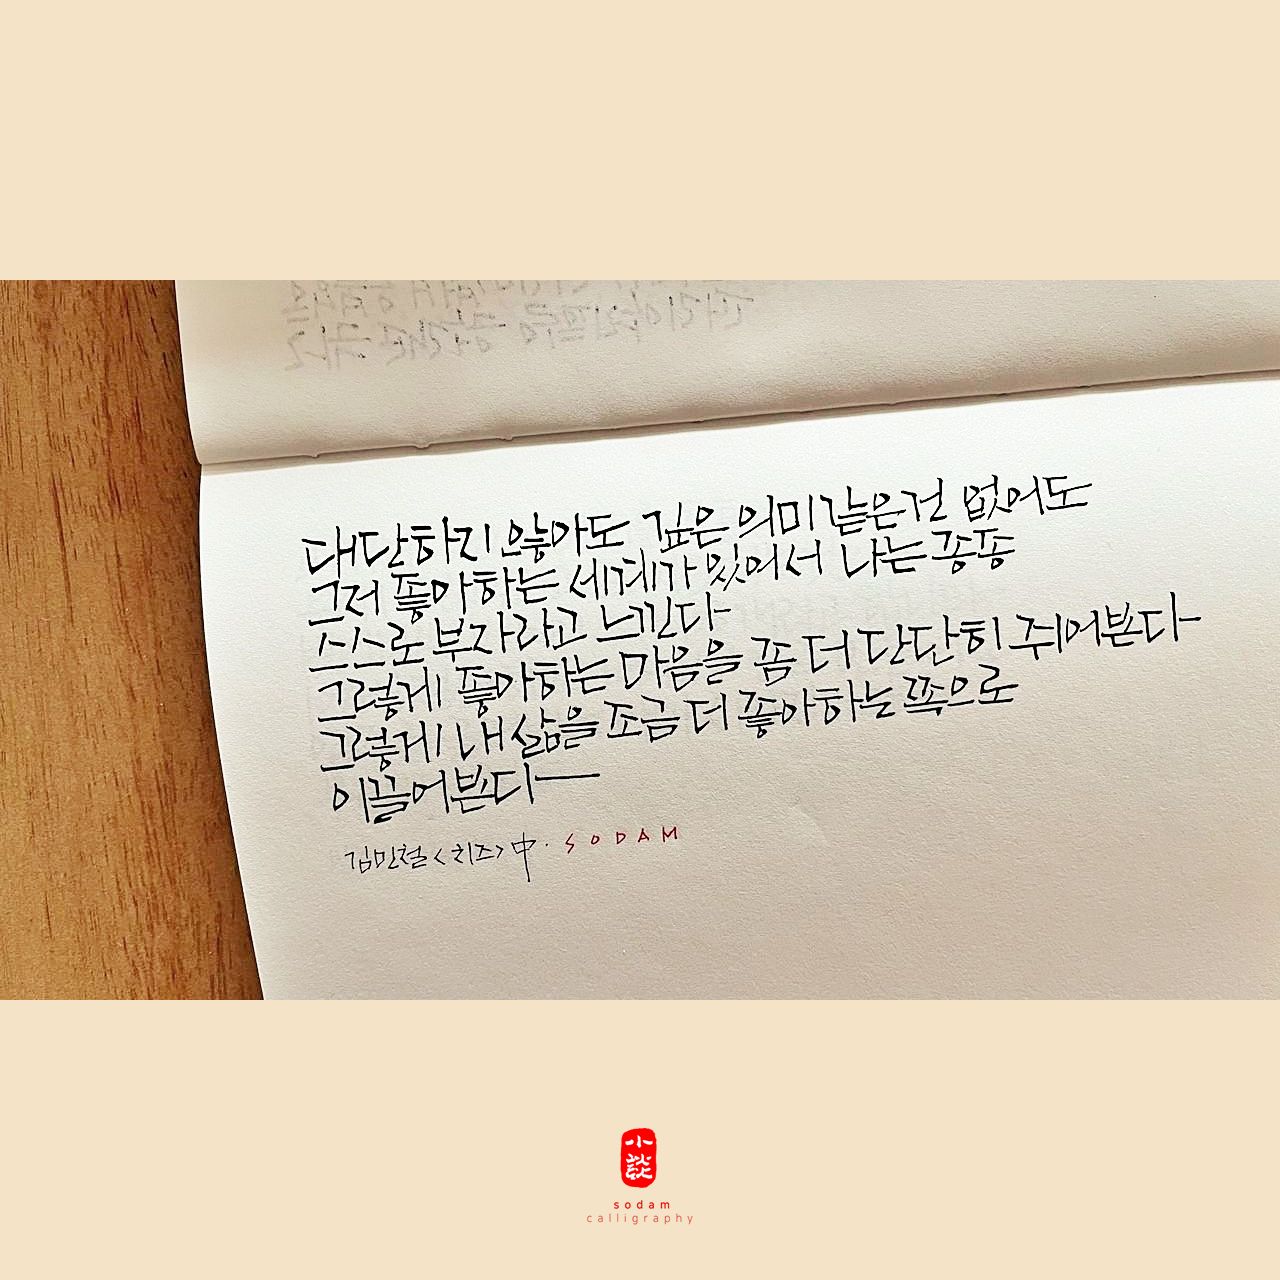 대단하지 않아도 깊은 의미 같은 건 없어도
그저 좋아하는 세계가 있어서 나는 종종
스스로 부자라고 느낀다
그렇게 좋아하는 마음을 좀 더 단단히 쥐어본다
그렇게 내 삶을 조금 더 좋아하는 쪽으로
이끌어본다
김민철 <치즈> 中 · SODAM
小談
sodam
calligraphy